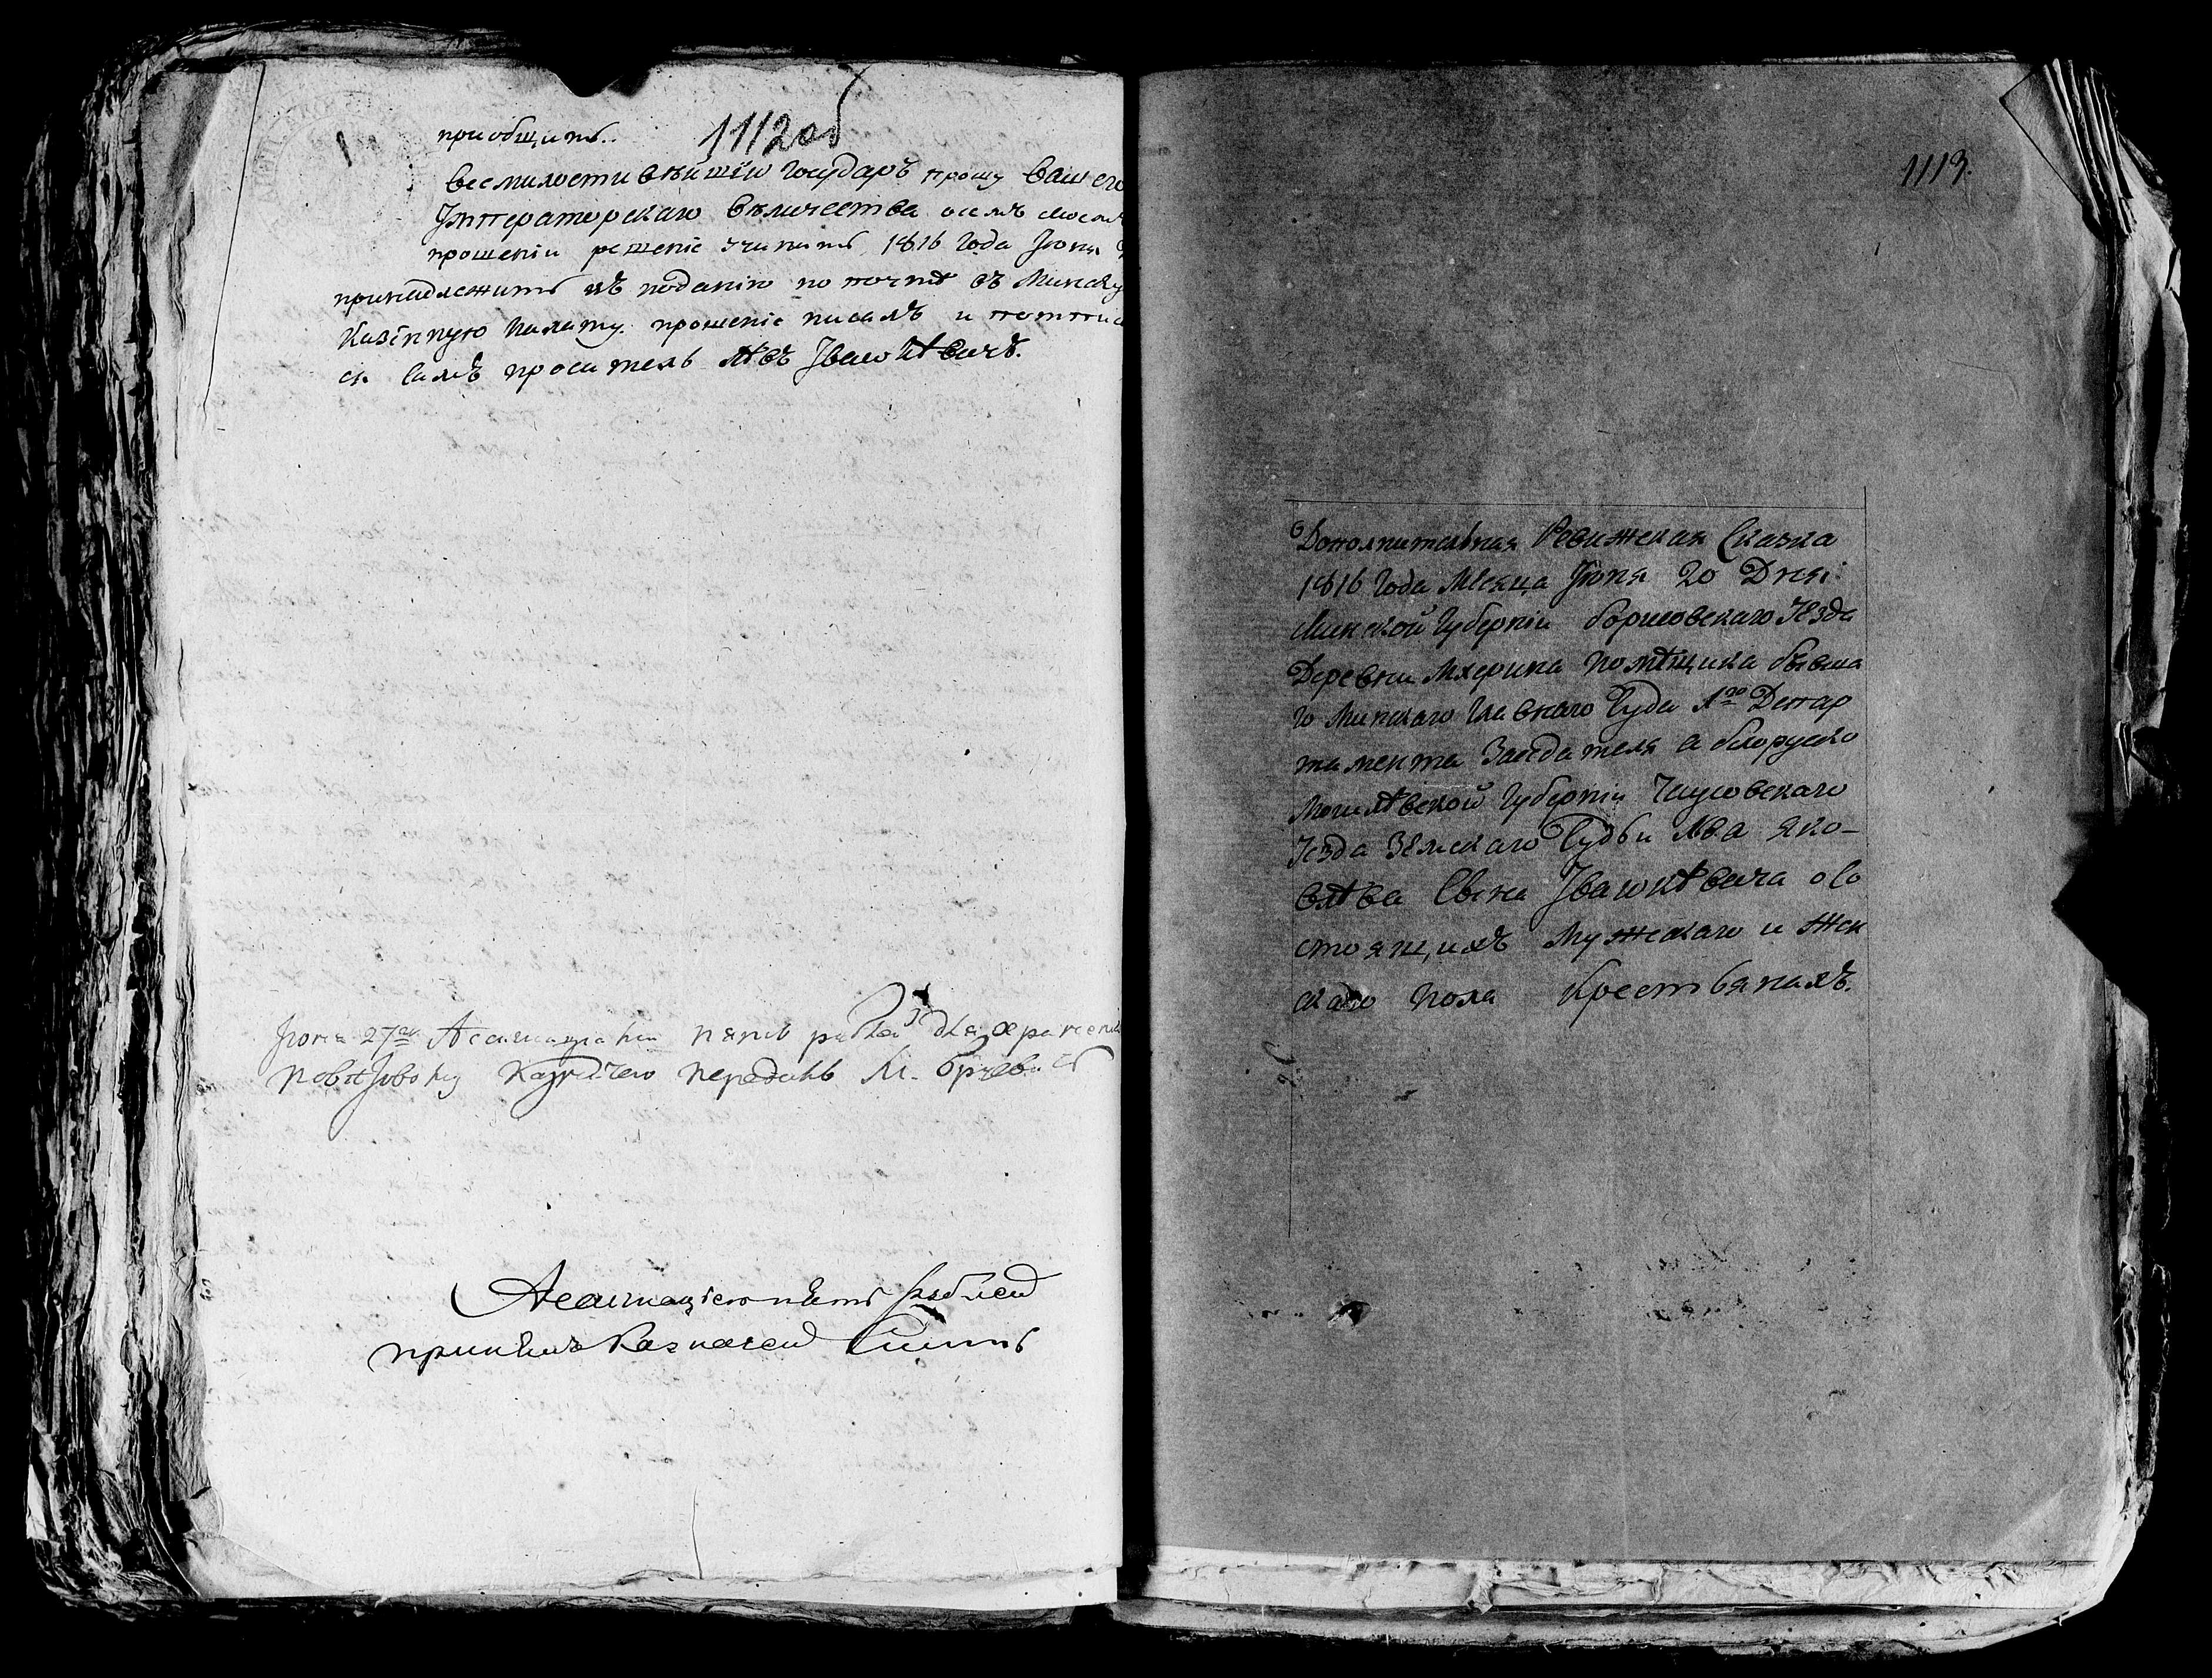 1112 об
приобщить.
всемилостивѣйшій Государь прошу вашего
Императорскаго Величества о семъ моемъ
прошеніи рѣшеніе учинить 1816 года Іюня
принадлежитъ къ поданію по почтѣ въ Минску
Казенную Палату. прошеніе писалъ и
ся самъ проситель Лѣвъ Ивашкѣвичъ.
Іюня 27 пять для храненія
передалъ М.
Асигнаціею пять рублей
принялъ Казначей
1113.
Дополнительная Ревижская Сказка
1816 Года Мѣсяца Іюня 20 Дня:
Минской Губерніи Борисовскаго Уѣзда
Деревни Мхерина помѣщика бывша
го Минскаго Главнаго Суда 1го Депар
тамента Засѣдателя а Белоруско
Могилѣвской Губерніи Чаусовскаго
Уезда Земскаго Судьи Лва Яко-
влѣва Сына Ивашкѣвича о со
стоящихъ Мужескаго и Жен
скаго пола Крестьянахъ.